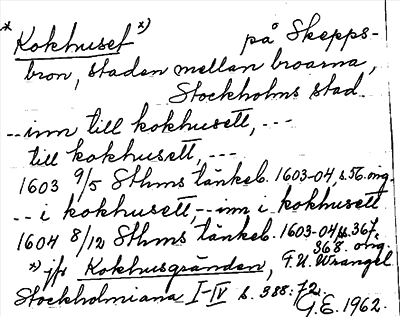 * Kokhuset *) på Skepps-
bron, staden mellan broarna,
Stockholms stad.
-- inn till kokhusett, ---
till kokhusett, ---
1603 9/5 Sthms tänkeb. 1603-04 s. 56. orig.
-- i kokhusett, -- inn i kokhusett
1604 8/12 Sthms tänkeb. 1603-04 ss. 367,
368. orig.
*) jfr Kokhusgränden, F.U. Wrangel
Stockholmiana I-IV s. 388:72.
G.E. 1962.